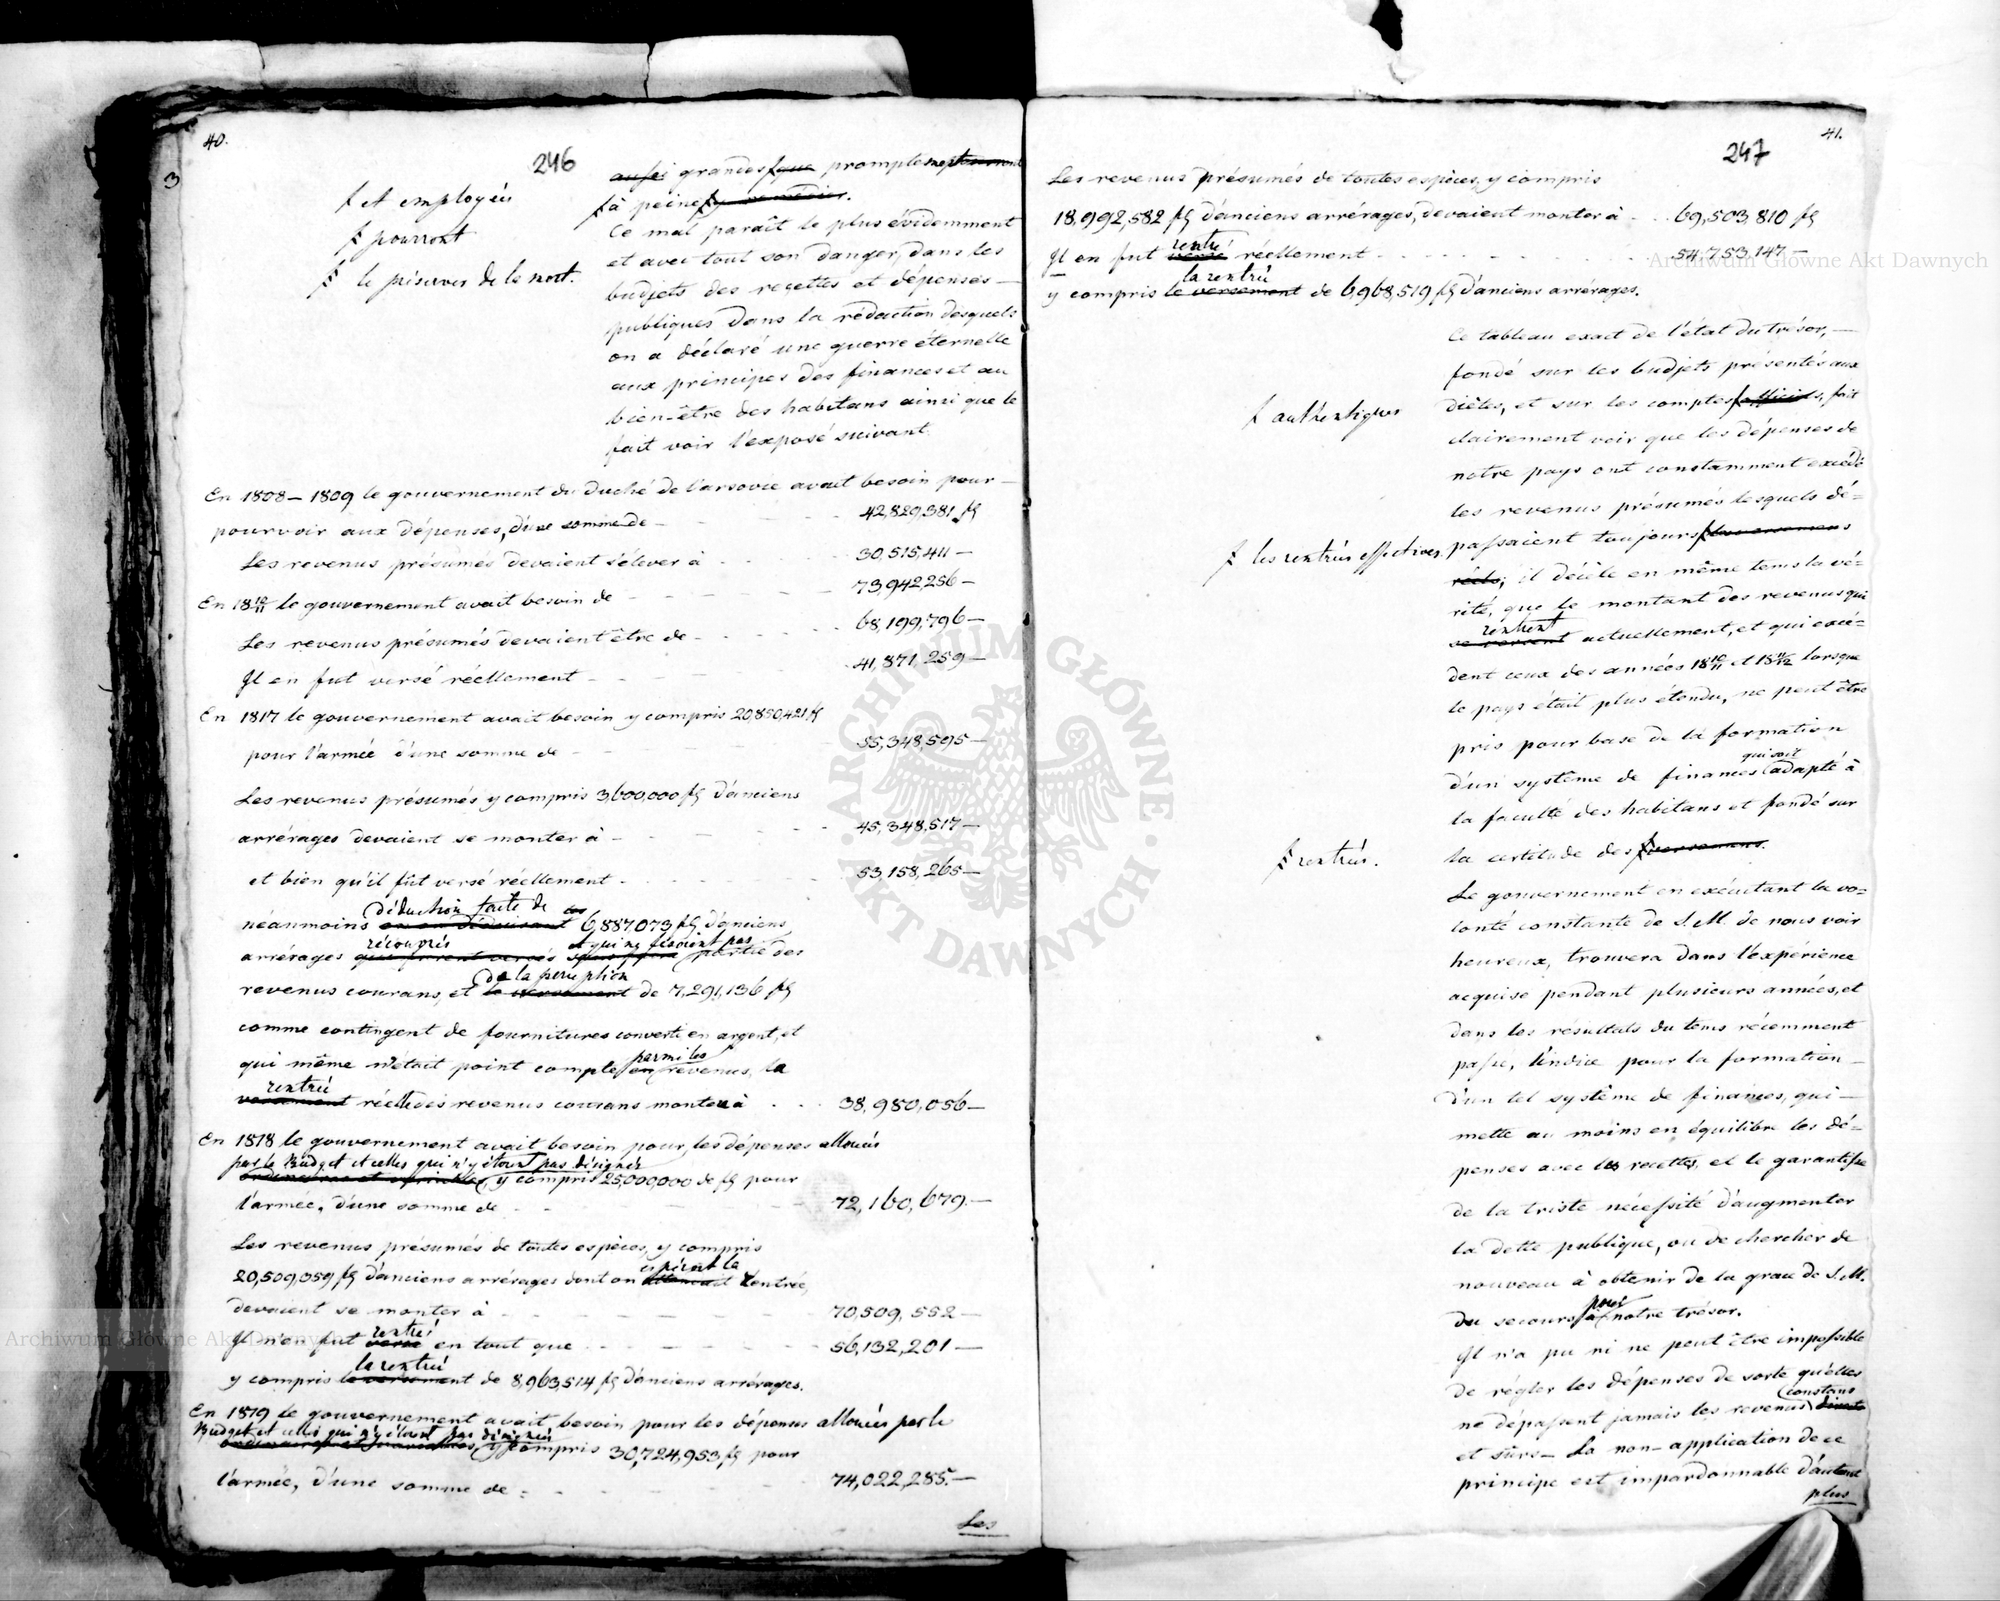 40.
246
3
ƒ et employées
ƒ pourront
ƒ le préserver de la mort.
aussi grandes ƒ que promptes ne pourront
ƒ à peine ƒ y remédier.
Ce mal paraît le plus évidemment
et avec tout son danger, dans les
budjets des recettes et dépenses —
publiques, dans la rédaction desquels
on a déclaré une guerre éternelle
aux principes des finances et au
bien-être des habitans ainsi que le
fait voir l'exposé suivant.
En 1808 – 1809 le gouvernement du duché de Varsovie avait besoin pour —
pourvoir aux dépenses, d'une somme de — 42,829,381 fl
Les revenus présumés devaient s'élever à 30,515,411 —
En 18 10/11 le gouvernement avait besoin de 73,942,256 —
Les revenus présumés devaient être de 68,199,796 —
Il en fut versé réellement 41,871,259 —
En 1817 le gouvernement avait besoin y compris 20,850,421 fl
pour l'armée d'une somme de 55,348,595 —
Les revenus présumés y compris 3,600,000 fl d'anciens
arrérages devaient se monter à 45,348,517 —
et bien qu'il fût versé réellement 53,158,265 —
déduction faite de
néanmoins en en déduisant 6,887,073 fl d'anciens
récouprés et qui ne fesaient pas
arrérages qui furent versés partie des
de la perception
revenus courans, et le versement de 7,291,136 fl
comme contingent de fournitures converti en argent, et
parmi les
qui même n'était point compté en revenus, la
rentrée
versement réelle des revenus courans monta à 38,980,056 —
En 1818 le gouvernement avait besoin pour les dépenses allouées
par le Budget et celles qui n'y étant pas désignées
y compris 25,000,000 de fl pour
l'armée, d'une somme de 72,160,679. —
Les revenus présumés de toutes espèces, y compris
espérait la
20,509,059 fl d'anciens arrérages dont on attendait rentrée,
devaient se monter à 70,509,552 —
rentré
Il n'en fut versé en tout que 56,132,201 —
la rentrée
y compris le versement de 8,963,514 fl d'anciens arrérages.
En 1819 le gouvernement avait besoin pour les dépenses allouées par le
Budget et celles qui n'y étant pas désignées
y compris 30,724,953 fl pour
l'armée, d'une somme de 74,022,285. —
Les
41.
247
Les revenus présumés de toutes espèces, y compris
18,992,582 fl d'anciens arrérages, devaient monter à 69,503,810 fl
rentré
Il en fut versé réellement 54,753,147 —
la rentrée
y compris le versement de 6,968,519 fl d'anciens arrérages.
Ce tableau exact de l'état du trésor, —
fondé sur les budjets présentés aux
ƒ authentiques
diètes, et sur les comptes ƒ officiels, fait
clairement voir que les dépenses de
notre pays ont constamment excédé
les revenus présumés lesquels dé=
ƒ les rentrées effectives.
passaient toujours ƒ les versemens
réels; il décèle en même tems la vé=
rité, que le montant des revenus qui
rentrent
se versent actuellement, et qui excé=
dent ceux des années 18 10/11 et 18 11/12 lorsque
le pays était plus étendu, ne peut être
pris pour base de la formation
qui soit
d'un système de finances adapté à
la faculté des habitans et fondé sur
ƒ rentrées.
la certitude des ƒ versemens.
Le gouvernement en exécutant la vo=
lonté constante de S. M. de nous voir
heureux, trouvera dans l'expérience
acquise pendant plusieurs années, et
dans les résultats du tems récemment
passé, l'indice pour la formation —
d'un tel système de finances, qui —
mette au moins en équilibre les dé=
penses avec les recettes, et le garantisse
de la triste nécessité d'augmenter
la dette publique, ou de chercher de
nouveau à obtenir de la grace de S. M.
pour
du secours à notre trésor.
Il n'a pu ni ne peut être impossible
de régler les dépenses de sorte qu'elles
constans
ne dépassent jamais les revenus directs
et sûrs — La non-application de ce
principe est impardonnable d'autant
plus
ARCHIWUM GŁÓWNE · AKT DAWNYCH ·
Archiwum Główne Akt Dawnych
Archiwum Główne Akt Dawnych